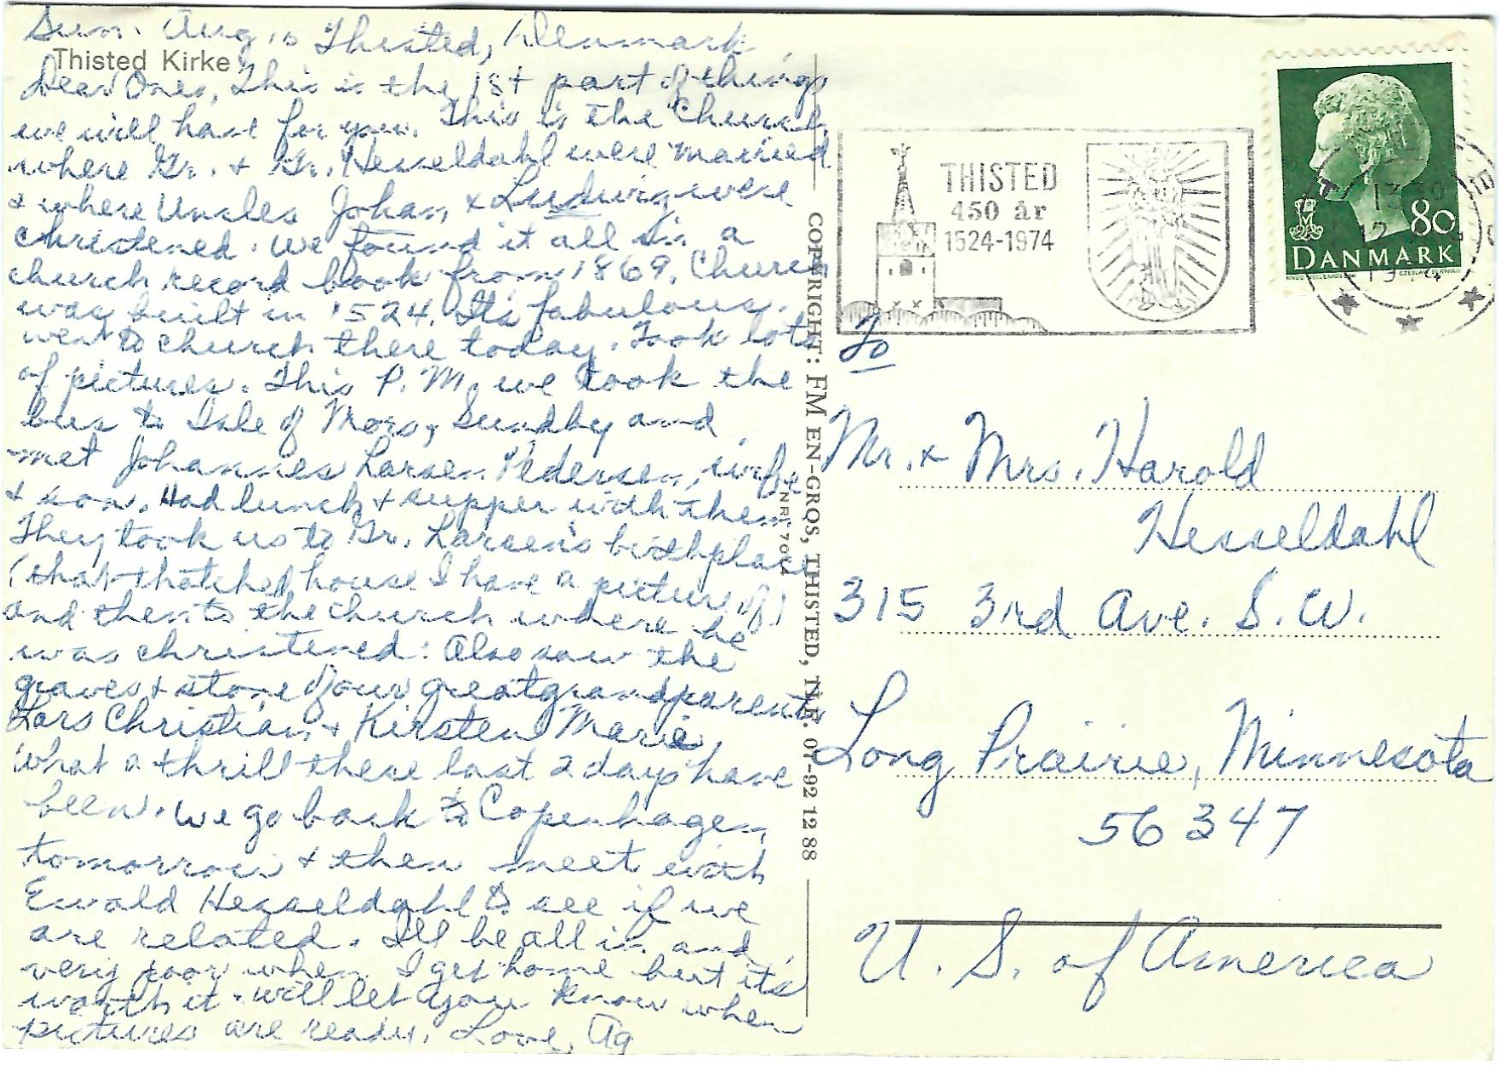 Sun. Aug. Thisted, Denmark
Thisted Kirke
Dear Ones, This is the 1st part of things
we will have for you. This is the Church
where Gr. + Gr. Hesseldahl were married
+ where Uncles Johan, + Ludwig were
christened. We found it all in a
church record book from 1869. Church
was built in 1524. Its fabulous.
went to church there today. Took lots
of pictures. This P.M. we took the
bus to Isle of Mors, Sundby and
met Johannes Larsen Pedersen, wife
+ son. Had lunch + supper with them.
They took us to Gr. Larsen's birthplace
(that thatched house I have a picture of)
and then to the church where he
was christened. Also saw the
graves + stone of our greatgrandparents
Lars Christian, + Kirsten Marie.
What a thrill these last 2 days have
been. We go back to Copenhagen
tomorrow + then meet with
Ewald Hesseldahl to see if we
are related. I'll be all in and
very poor when I get home but its
worth it. will let you know when
pictures are ready. Love, Ag
COPYRIGHT: FM EN-GROS, THISTED, TLF. 07-92 12 88
NR. 7
THISTED
450 år
1524-1974
1974
80
DANMARK
To
Mr. + Mrs. Harold
Hesseldahl
315 3rd Ave. S.W.
Long Prairie, Minnesota
56347
U. S. of America